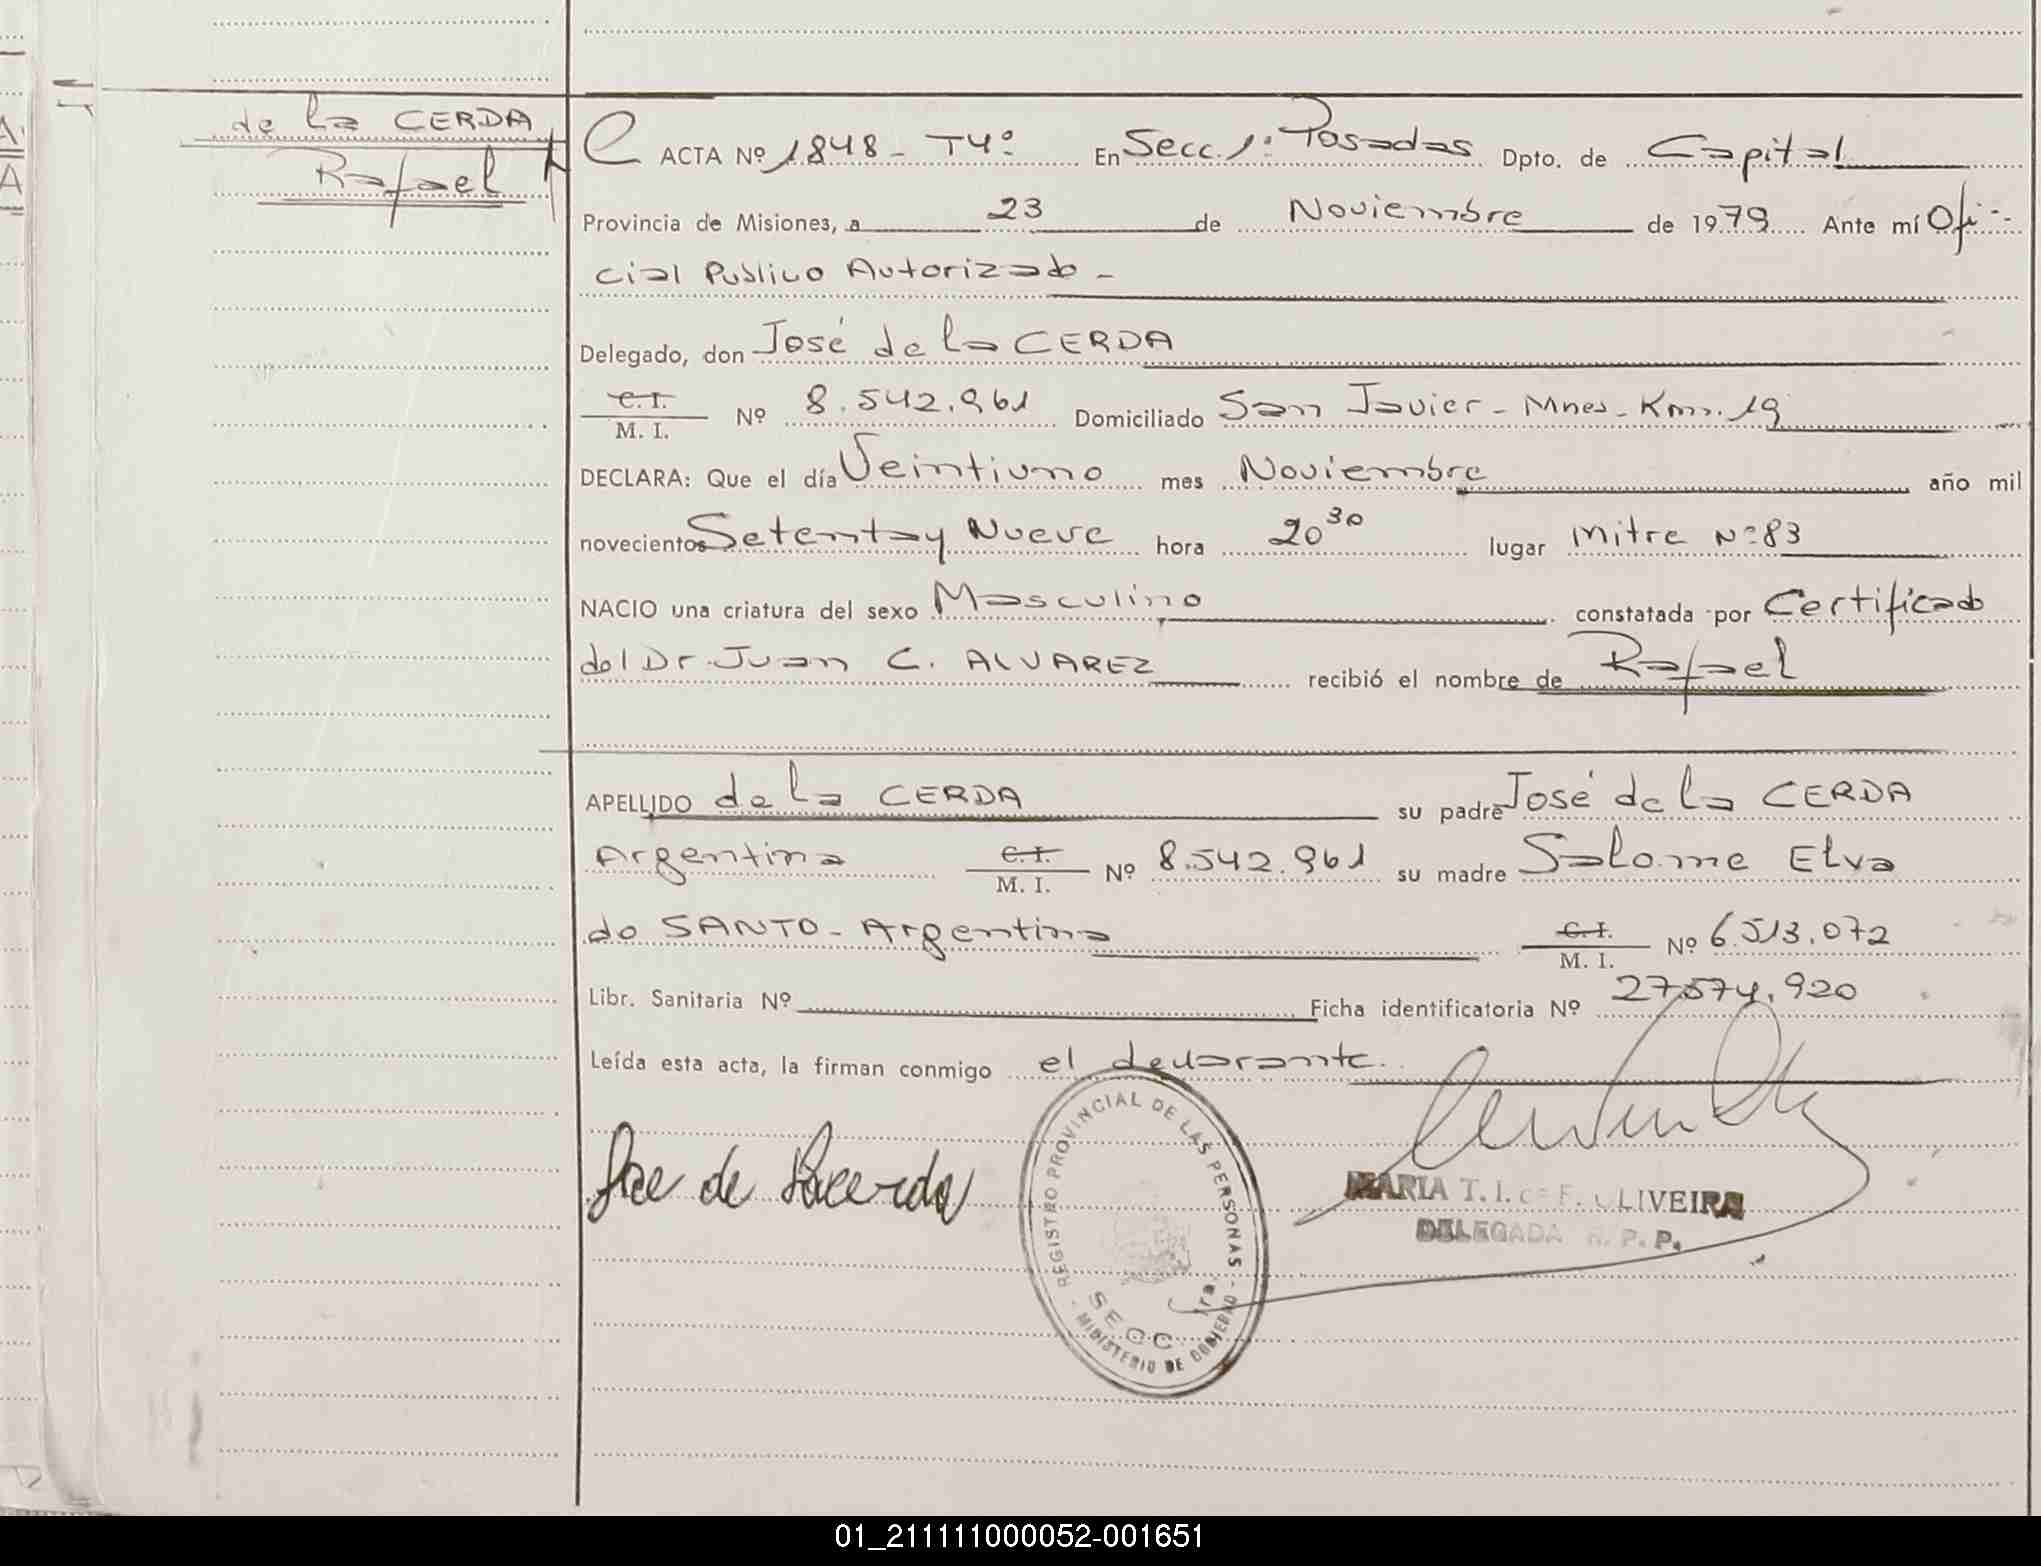 de la CERDA
Rafael
ACTA Nº 1848 - T4º En Secc. 1ª Posadas Dpto. de Capital
Provincia de Misiones, a 23 de Noviembre de 1979 Ante mí Ofi-
cial Publico Autorizado -
Delegado, don José de la CERDA
C. I.
M. I. Nº 8.542.961 Domiciliado San Javier - Mnes - Km. 19
DECLARA: Que el día Veintiuno mes Noviembre año mil
novecientos Setenta y Nueve hora 20 30 lugar Mitre Nº 83
NACIO una criatura del sexo Masculino constatada por Certificado
del Dr. Juan C. ALVAREZ recibió el nombre de Rafael
APELLIDO de la CERDA su padre José de la CERDA
Argentina C. I. M. I. Nº 8.542.961 su madre Salome Elva
do SANTO - Argentina C. I. M. I. Nº 6.513.072
Libr. Sanitaria Nº Ficha identificatoria Nº 27574.920
Leída esta acta, la firman conmigo el declarante.
Jose de Lacerda
REGISTRO PROVINCIAL DE LAS PERSONAS - MINISTERIO DE GOBIERNO -
SECC. 1ra.
MARIA T. I. de F. OLIVEIRA
DELEGADA R. P. P.
01_211111000052-001651